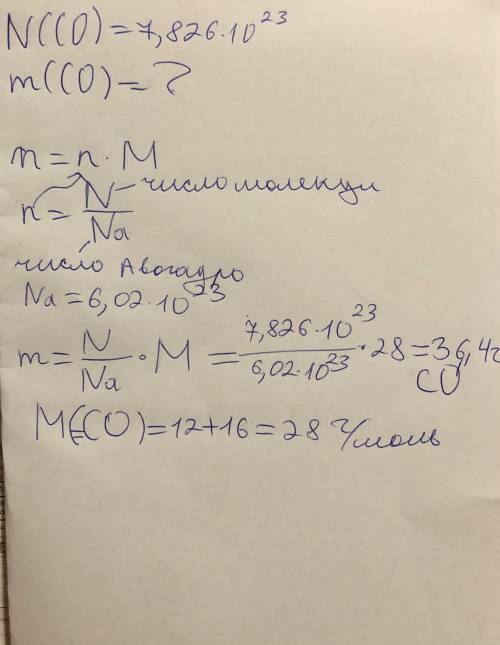 N(CO)=7,826·10²³
m(CO)=?
m=n·M
n=N/Na – число молекул
число Авогадро
Na=6,02·10²³
m=N/Na·M=7,826·10²³/6,02·10²³·28=36,4г
CO
M(CO)=12+16=28 г/моль